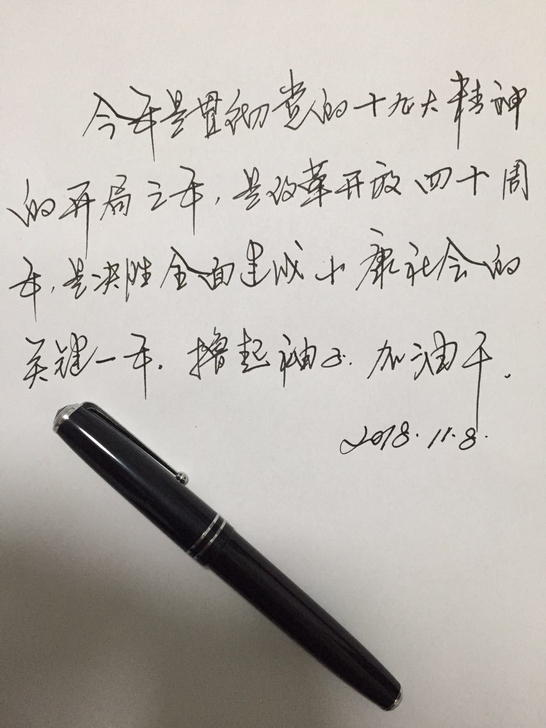 今年是贯彻党的十九大精神
的开局之年,是改革开放四十周
年,是决胜全面建成小康社会的
关键一年.撸起袖子.加油干.
2018.11.8.